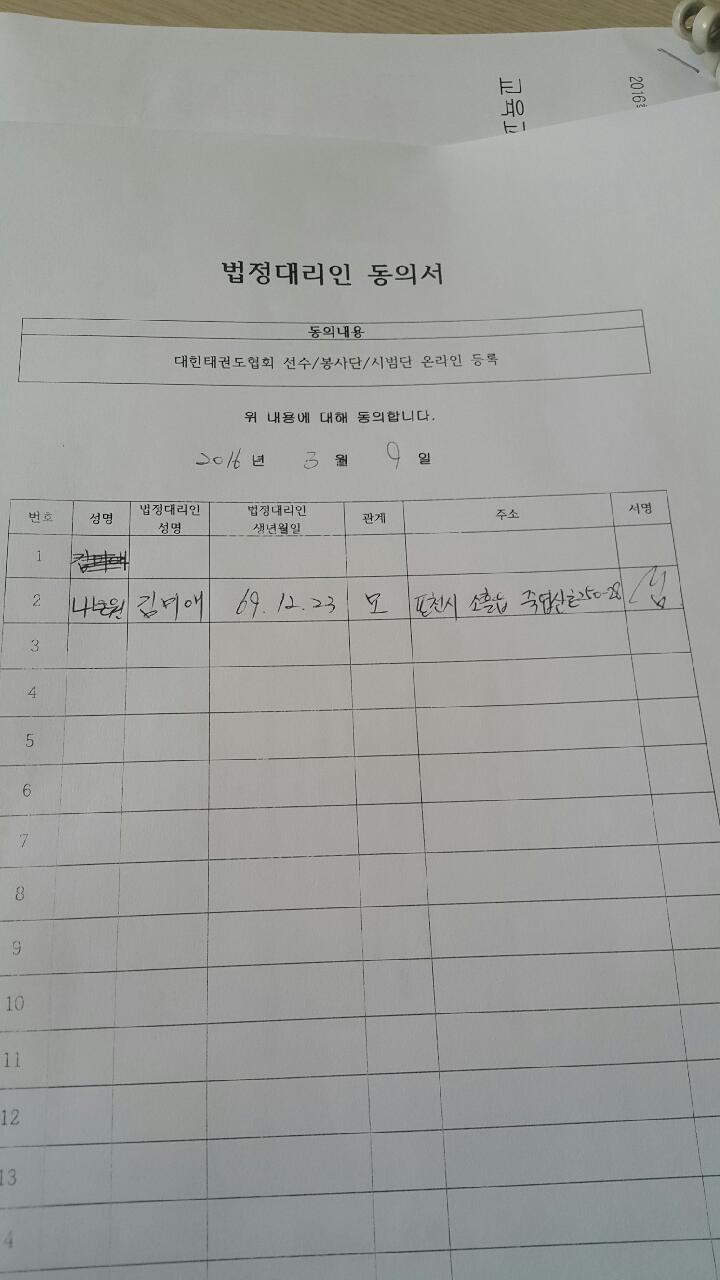 2016
교육
법정대리인 동의서
동의내용
대힌태권도협회 선수/봉사단/시범단 온라인 등록
위 내용에 대해 동의합니다.
2016 년 3 월 9 일
번호 성명 법정대리인 성명 법정대리인 생년월일 관계 주소 서명
1
2 김미애 69.12.23 모 포천시 소흘읍 죽엽산로250-28
3
4
5
6
7
8
9
10
11
12
13
4